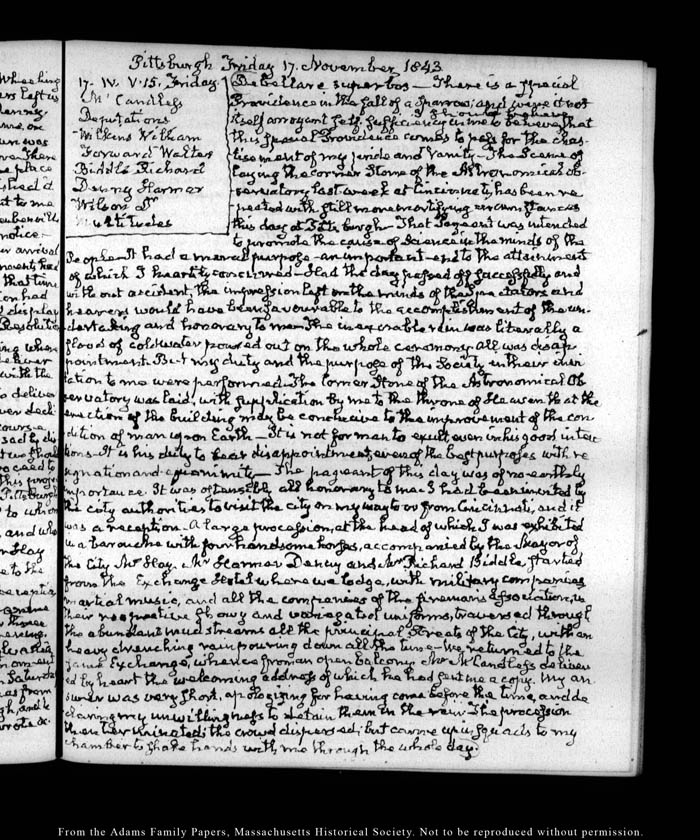 Pittsburgh Friday 17. November 1843
17. IV. V.15. Friday
McCandless
Deputations
Wilkins William
Forward Walter
Biddle Richard
Denny Harmar
Wilson Mr
Multitudes
Debellare superbos — There is a special
Providence in the fall of a Sparrow; and were it not
itself arrogant self sufficiency in me to believe that
this special Providence comes to pass for the chas-
tisement of my pride and Vanity. The Scene of
laying the corner Stone of the Astronomical Ob-
servatory last week at Cincinnati, has been re-
peated with still more mortifying circumstances
this day at Pittsburgh. That Pageant was intended
to promote the cause of Science in the minds of the
People. It had a moral purpose — an important end to the attainment
of which I heartily concurred. Had the day passed off successfully and
without accident, the impression left on the minds of the Spectators and
hearers would have been favourable to the accomplishment of the un-
dertaking and honorary to me. The inexorable rain was literally a
flood of cold water poured out on the whole ceremony. all was disap-
pointment. But my duty and the purpose of the Society in their invi-
tation to me were performed. The Corner Stone of the Astronomical Ob-
servatory was laid, with supplication by me to the throne of Heaven that the
erection of the building may be conducive to the improvement of the con-
dition of man upon Earth — It is not for man to exult even in his good inten-
tions — It is his duty to bear disappointment, even of the best purposes with re-
signation and equanimity — The pageant of this day was of no earthly
importance. It was ostensibly all honorary to me. I had been invited by
the city authorities to visit the city on my way to or from Cincinnati, and it
was a reception. A large procession, at the head of which I was exhibited
in a barouche with four handsome horses, accompanied by the Mayor of
the City Mr Hay. Mr Harmar Denny and Mr Richard Biddle, started
from the Exchange Hotel where we lodge, with military companies
martial music, and all the companies of the firemen's Association, in
their respective showy and variegated uniforms, traversed through
the abundant mud streams all the principal Streets of the City, with an
heavy drenching rain pouring down all the time. We returned to the
same Exchange, whence from an open balcony Mr McCandless deliver-
ed by heart the welcoming address of which he had sent me a copy. My an-
swer was very short, apologizing for having come before the time, and de-
claring my unwillingness to detain them in the rain. The procession
then terminated; the crowd dispersed; but came up in squads to my
chamber to shake hands with me through the whole day
From the Adams Family Papers, Massachusetts Historical Society. Not to be reproduced without permission.